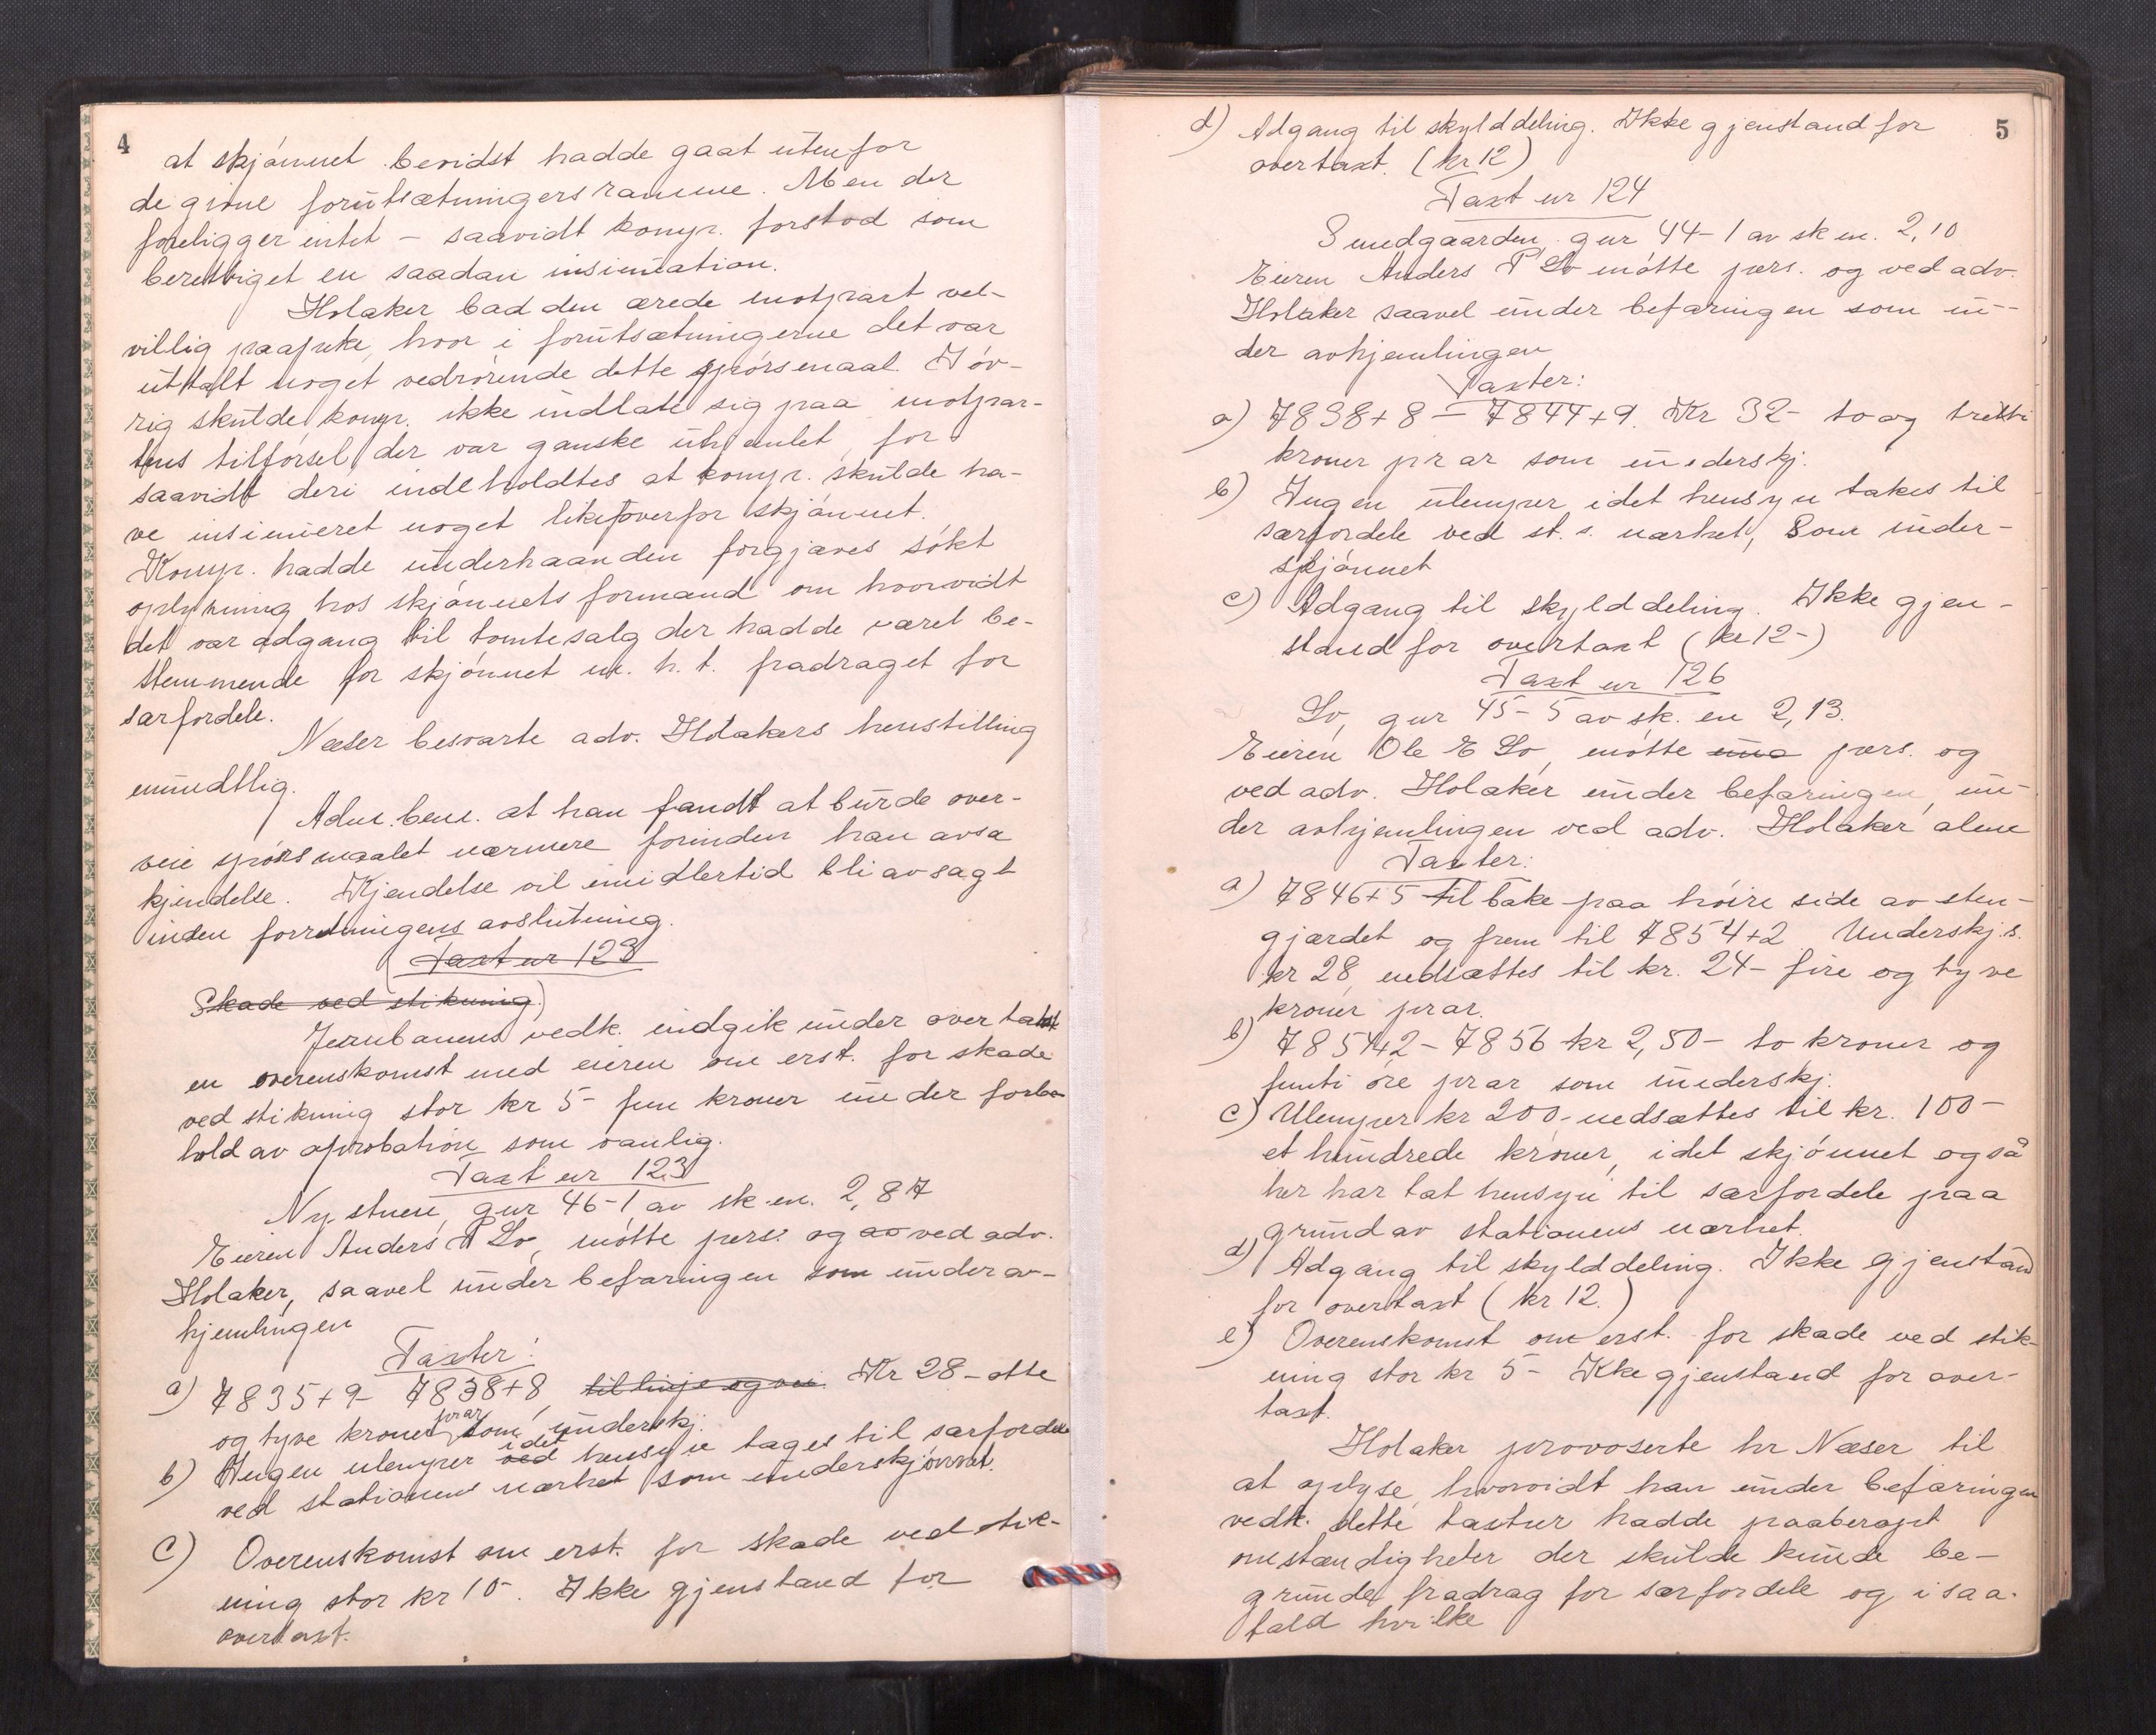 4
at skjønnet bevidst hadde gaat utenfor
de givne forutsætningers ramme. Men der
foreligger intet - saavidt komp. forstod som
berettiget en saadan insinuation.
Holaker bad den ærede motpart vel-
villig paapeke, hvor i forutsætningerne det var
uttalt noget vedrørende dette spørsmaal. I øv-
rig skulde komp. ikke indlate sig paa motpar-
tens tilførsel, der var ganske uhjemlet, for
saavidt deri indeholdtes at komp. skulde ha-
ve insinueret noget likeoverfor skjønnet.
Komp. hadde underhaanden forgjæves søkt
oplysning hos skjønnets formand om hvorvidt
det var adgang til tomtesalg der hadde været be-
stemmende for skjønnet m. h. t. fradraget for
særfordele.
Næser besvarte adv. Holakers henstilling
mundtlig.
Adm. bem. at han fandt at burde over-
veie spørsmaalet nærmere forinden han avsa
kjendelse. Kjendelse vil imidlertid bli avsagt
inden forretningens avslutning.
Taxt nr 123
Skade ved stikning.
Jernbanens vedk. indgik under overtakst
en overenskomst med eieren om erst. for skade
ved stikning stor kr 5- fem kroner under forbe-
hold av aprobation som vanlig.
Taxt nr 123
Nystuen, gnr 46-1 av sk.m. 2,87
Eieren Anders P Lo, møtte pers. og av ved adv.
Holaker, saavel under befaringen som under av-
hjemlingen
Taxter:
a) 7835+9- 7838+8, til linje og vei. Kr 28- otte
og tyve kroner pr ar som underskj.
b) Ingen ulemper ved idet hensyn tages til særfordele
ved stationens nærhet som underskjønnet.
c) Overenskomst om erst. for skade ved stik-
ning stor kr 10-. Ikke gjenstand for
overtaxt.
5
d) Adgang til skylddeling. Ikke gjenstand for
overtaxt. (kr 12)
Taxt nr 124
Smedgaarden, gnr 44-1 av sk m. 2,10
Eieren Anders P Lo møtte pers. og ved adv.
Holaker saavel under befaringen som un-
der avhjemlingen
Taxter:
a) 7838+8 - 7844+9. Kr 32- to og tretti
kroner pr ar som underskj.
b) Ingen ulemper idet hensyn takes til
særfordele ved st. s. nærhet, som under-
skjønnet
c) Adgang til skylddeling. Ikke gjen-
stand for overtaxt (kr 12-)
Taxt nr 126
Lo, gnr 45-5 av sk. m 2,13.
Eieren Ole E Lo, møtte una pers. og
ved adv. Holaker under befaringen, un-
der avhjemlingen ved adv. Holaker alene
Taxter:
a) 7846+5 tilbake paa høire side av sten-
gjærdet og frem til 7854+2. Underskj.s.
kr 28, nedsættes til kr. 24- fire og tyve
kroner pr ar.
b) 7854+2 - 7856 kr 2,50- to kroner og
femti øre pr ar som underskj.
c) Ulemper kr 200,- nedsættes til kr. 100-
et hundrede kroner, idet skjønnet også
her har tat hensyn til særfordele paa
grund av stationens nærhet.
d) Adgang til skylddeling. Ikke gjenstand
for overtaxt (kr 12.)
e) Overenskomst om erst. for skade ved stik-
ning stor kr 5- Ikke gjenstand for over-
taxt.
Holaker provoserte hr Næser til
at oplyse, hvorvidt han under befaringen
vedk. dette taxtnr hadde paaberopt
omstændigheter der skulde kunde be-
grunde fradrag for særfordele og i saa
fald hvilke